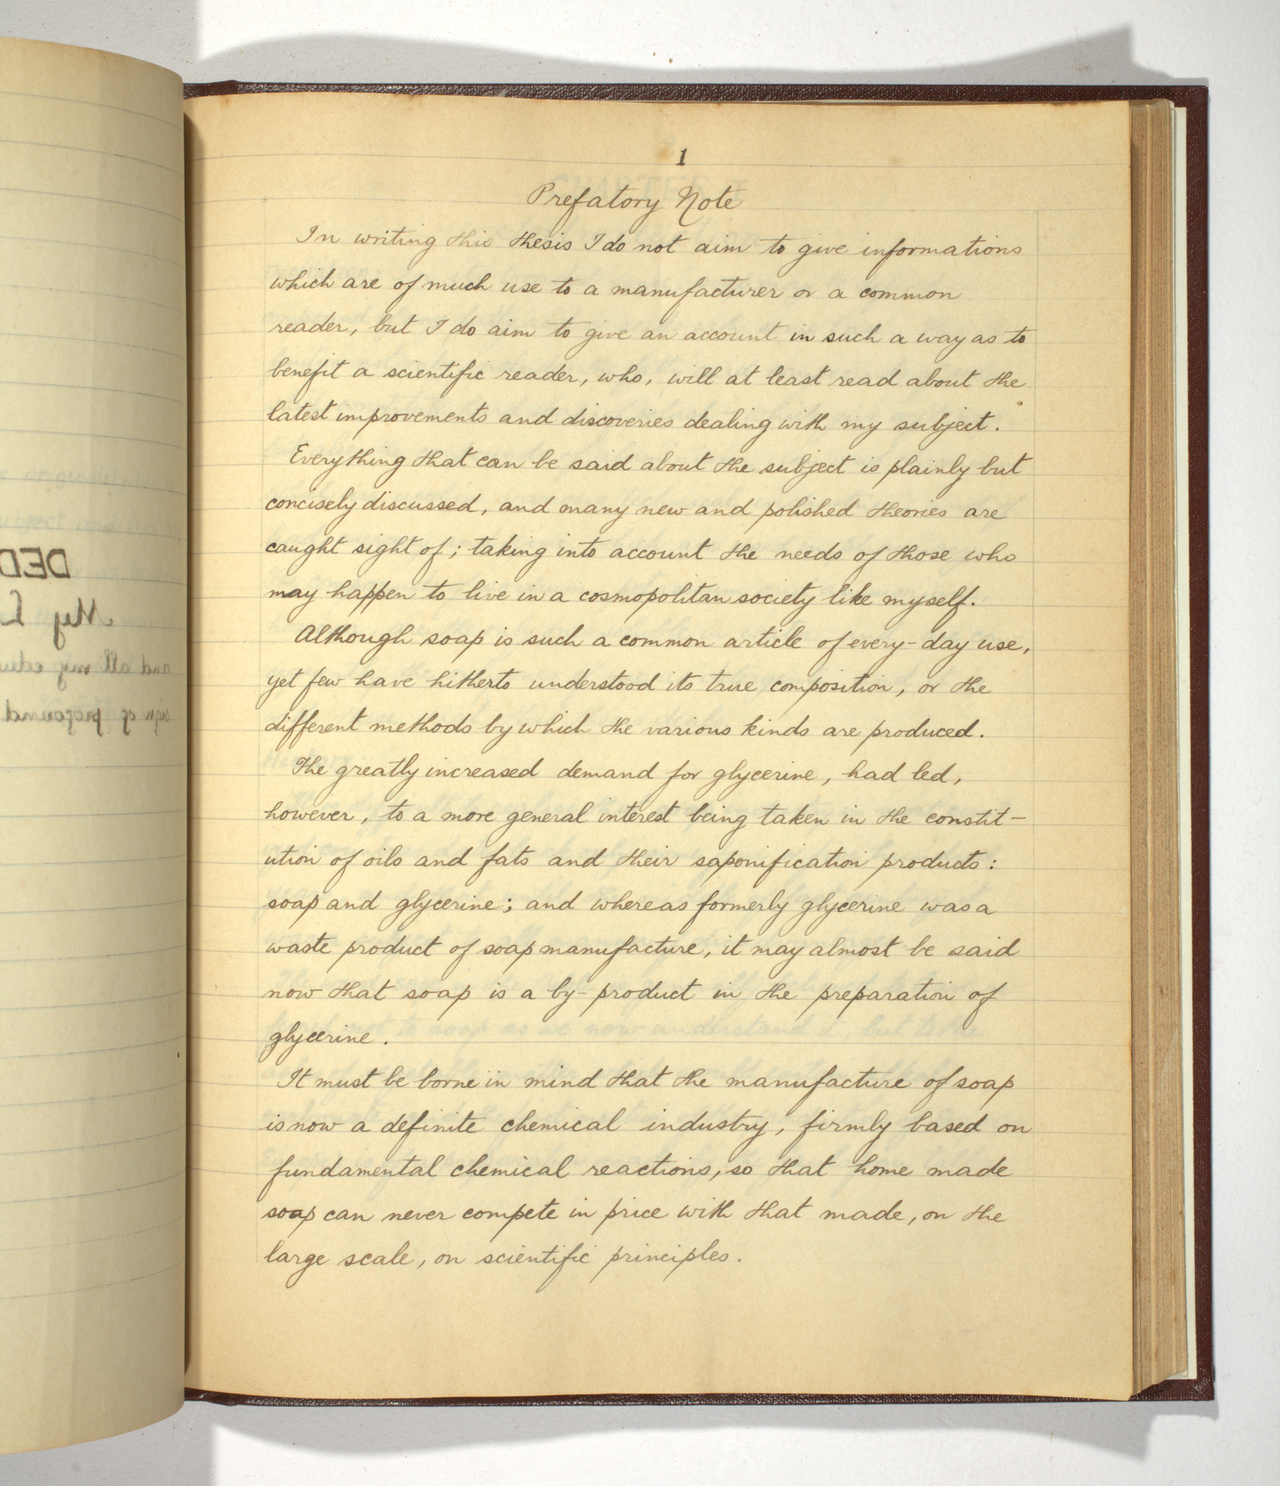 1
Prefatory Note
In writing this thesis I do not aim to give informations
which are of much use to a manufacturer or a common
reader, but I do aim to give an account in such a way as to
benefit a scientific reader, who, will at least read about the
latest improvements and discoveries dealing with my subject.
Everything that can be said about the subject is plainly but
concisely discussed, and many new and polished theories are
caught sight of; taking into account the needs of those who
may happen to live in a cosmopolitan society like myself.
Although soap is such a common article of every-day use,
yet few have hitherto understood its true composition, or the
different methods by which the various kinds are produced.
The greatly increased demand for glycerine, had led,
however, to a more general interest being taken in the constit-
ution of oils and fats and their saponification products:
soap and glycerine; and whereas formerly glycerine was a
waste product of soap manufacture, it may almost be said
now that soap is a by-product in the preparation of
glycerine.
It must be borne in mind that the manufacture of soap
is now a definite chemical industry, firmly based on
fundamental chemical reactions, so that home made
soap can never compete in price with that made, on the
large scale, on scientific principles.